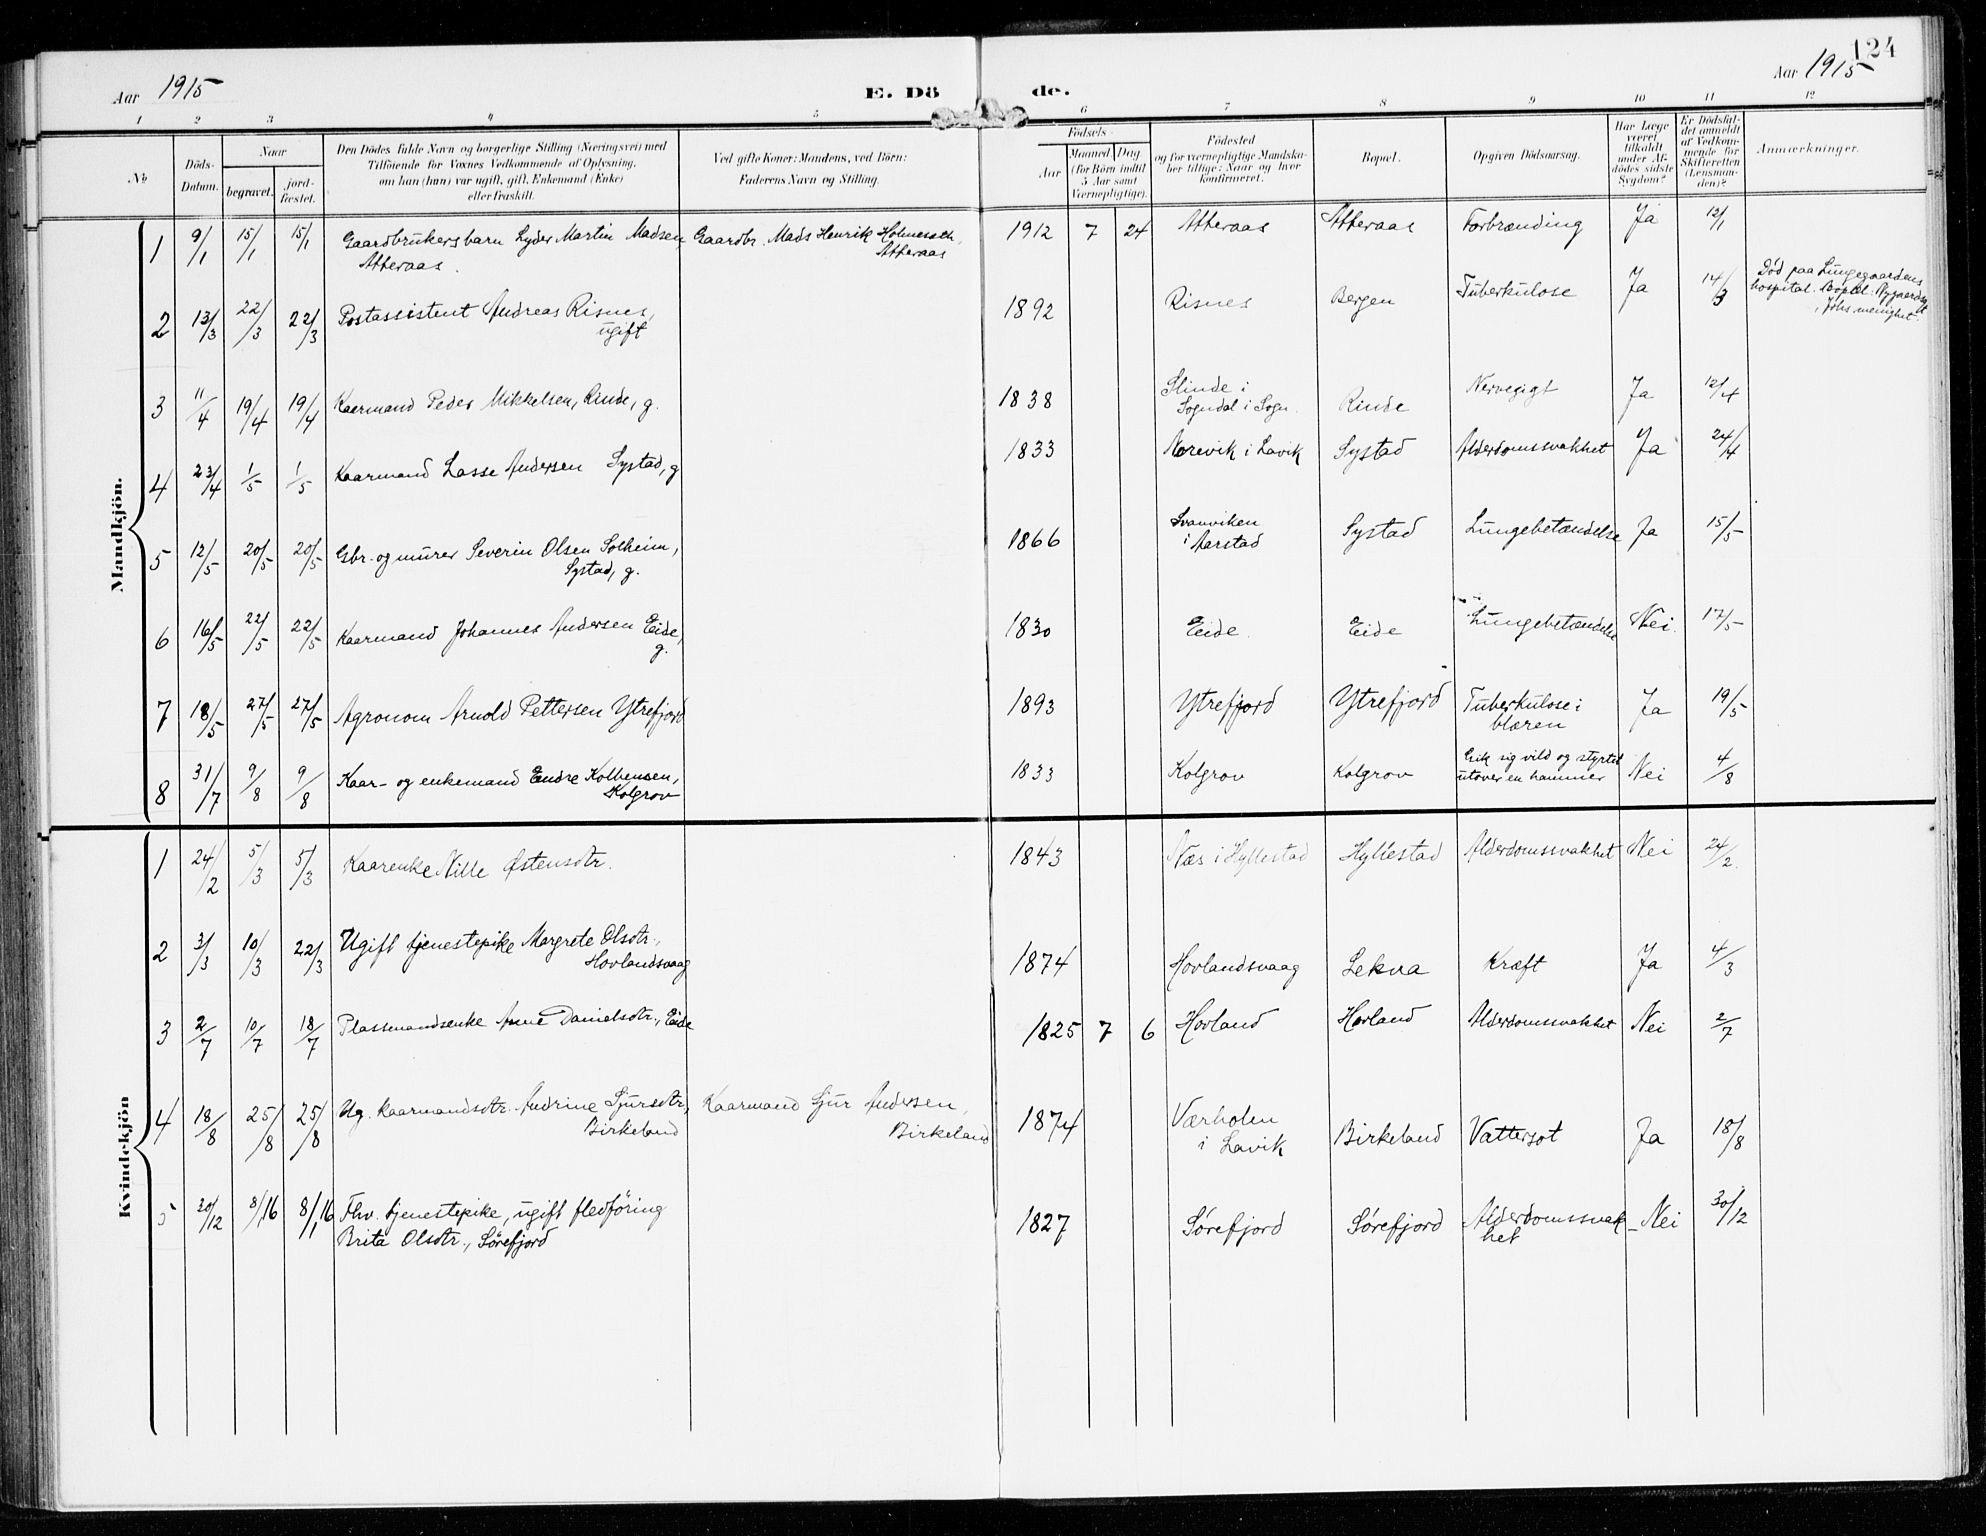 124
Aar 1915
E. Dö de.
Aar 1915
1 2 3 4 5 6 7 8 9 10 11 12
№
Döds-
Datum.
Naar
begravet.
jord-
fæstet.
Den Dödes fulde Navn og borgerlige Stilling (Næringsvei) med
Tilföiende for Voxnes Vedkommende af Oplysning,
om han (hun) var ugift, gift, Enkemand (Enke)
eller fraskilt.
Ved gifte Koner: Mandens, ved Börn:
Faderens Navn og Stilling.
Födsels-
Aar
Maaned Dag
(for Börn indtil
5 Aar samt
Værnepligtige).
Födested
og for værnepligtige Mandska-
ber tillige: Naar og hvor
konfirmeret.
Bopæl.
Opgiven Dödsaarsag.
Har Læge
været
tilkaldt
under Af-
dödes sidste
Sygdom?
Er Dödsfal-
det anmeldt
af Vedkom-
mende for
Skifteretten
(Lensman-
den)?
Anmærkninger.
Mandkjön.
1 9/1 15/1 15/1 Gaardbrukersbarn Lyder Martin Madsen Gaardbr. Mads Henrik 1912 7 24 Atteraas Atteraas Forbrænding Ja 12/1
Atteraas. Atteraas
2 13/3 22/3 22/3 Postassistent Andreas Risnes, 1892 Risnes Bergen Tuberkulose Ja 14/3 Død paa Lungegaardens
ugift hospital.
menighet.
3 11/4 19/4 19/4 Kaarmand Peder Mikkelsen, Rinde, g. 1838 Slinde i Rinde Nervegigt Ja 12/4
Sogndal i Sogn.
4 23/4 1/5 1/5 Kaarmand Lasse Andersen Systad, g 1833 Norevik i Lavik Systad Alderdomssvakhet Ja 24/4
5 12/5 20/5 20/5 Gbr. og murer Severin Olsen Solheim, 1866 Svanviken Systad Lungebetændelse Ja 15/5
Systad, g. i Aarstad
6 16/5 22/5 22/5 Kaarmand Johannes Andersen Eide, 1830 Eide. Eide Lungebetændelse Nei. 17/5
g.
7 18/5 27/5 27/5 Agronom Arnold Pettersen Ytrefjord 1893 Ytrefjord Ytrefjord Tuberkulose i Ja 19/5
blæren
8 31/7 9/8 9/8 Kaar- og enkemand Endre Kolbensen, 1833 Kolgrov Kolgrov Gik sig vild og styrtet Nei 4/8
Kolgrov utover en hammer
Kvindekjön
1 24/2 5/3 5/3 Kaarenke Nille Østensdtr. 1843 Næs i Hyllestad Hyllestad Alderdomssvakhet Nei 24/2.
2 3/3 10/3 22/3 Ugift tjenestepike Margrete Olsdtr., 1874 Hovlandsvaag Lekva Kræft Ja 4/3
Hovlandsvaag
3 2/7 10/7 18/7 Plassmandsenke Anne Danielsdtr., Eide 1825 7 6 Hovland Hovland Alderdomssvakhet Nei 2/7
4 18/8 25/8 25/8 Ug. kaarmandsdtr. Andrine Sjursdtr, Kaarmand Sjur Andersen, 1874 Værholm Birkeland Vattersot Ja 18/8
Birkeland Birkeland i Lavik
5 30/12 8/1 16 8/1 16 Fhv. tjenestepike, ugift fledføring 1827 Sørefjord Sørefjord Alderdomssvak- Nei 30/12
Brita Olsdtr., Sørefjord het